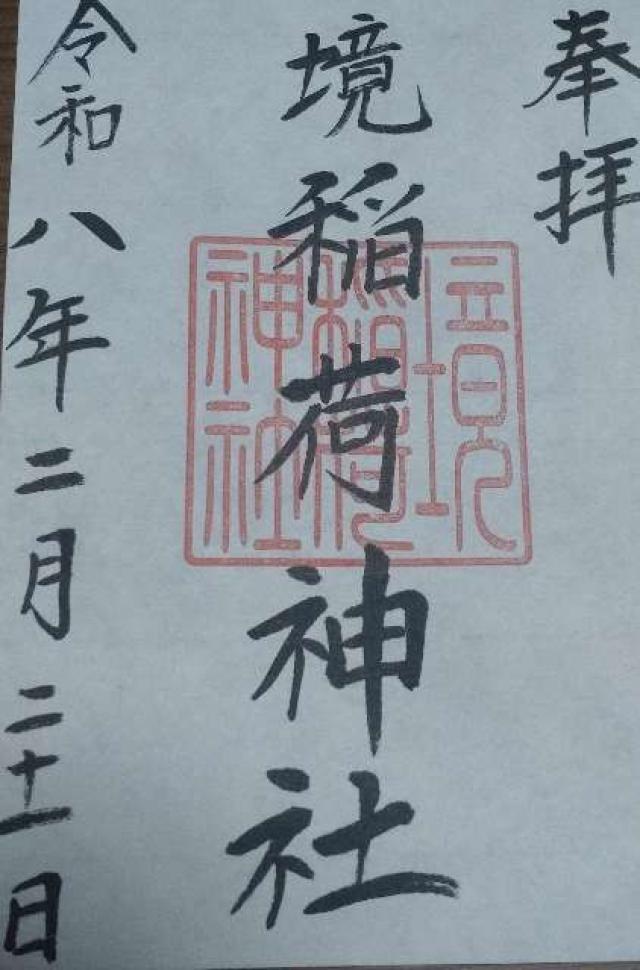 奉拝
境稲荷神社
境稲荷神社
令和八年二月二十一日